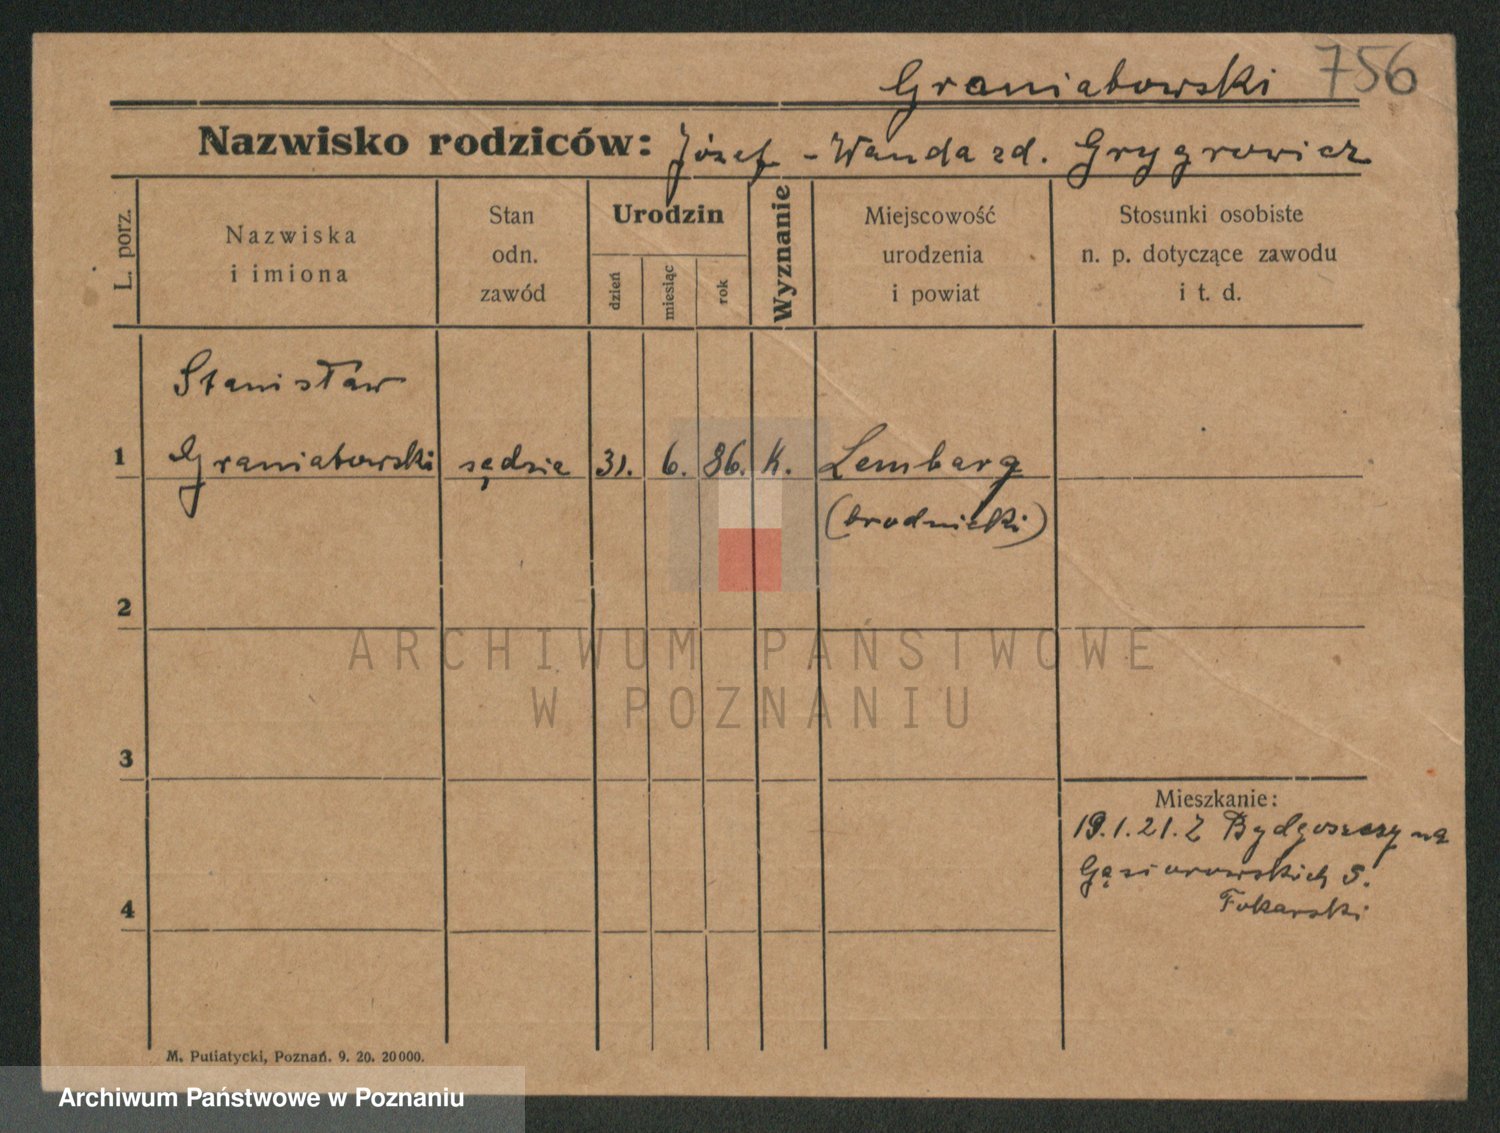 Graniatowski 756
Nazwisko rodziców: Józef - Wanda zd. Grygrowicz
L. porz.
Nazwiska
i imiona
Stan
odn.
zawód
Urodzin
dzień
miesiąc
rok
Wyznanie
Miejscowość
urodzenia
i powiat
Stosunki osobiste
n. p. dotyczące zawodu
i t. d.
Stanisław
1 Graniatowski sędzia 31. 6. 86. K. Lembarg
(brodnicki)
2
3
Mieszkanie:
19.1.21. Z Bydgoszczy na
Gąsiorowskich 5.
Fokarski
4
M. Putiatycki, Poznań. 9. 20. 20000.
ARCHIWUM PAŃSTWOWE
W POZNANIU
Archiwum Państwowe w Poznaniu